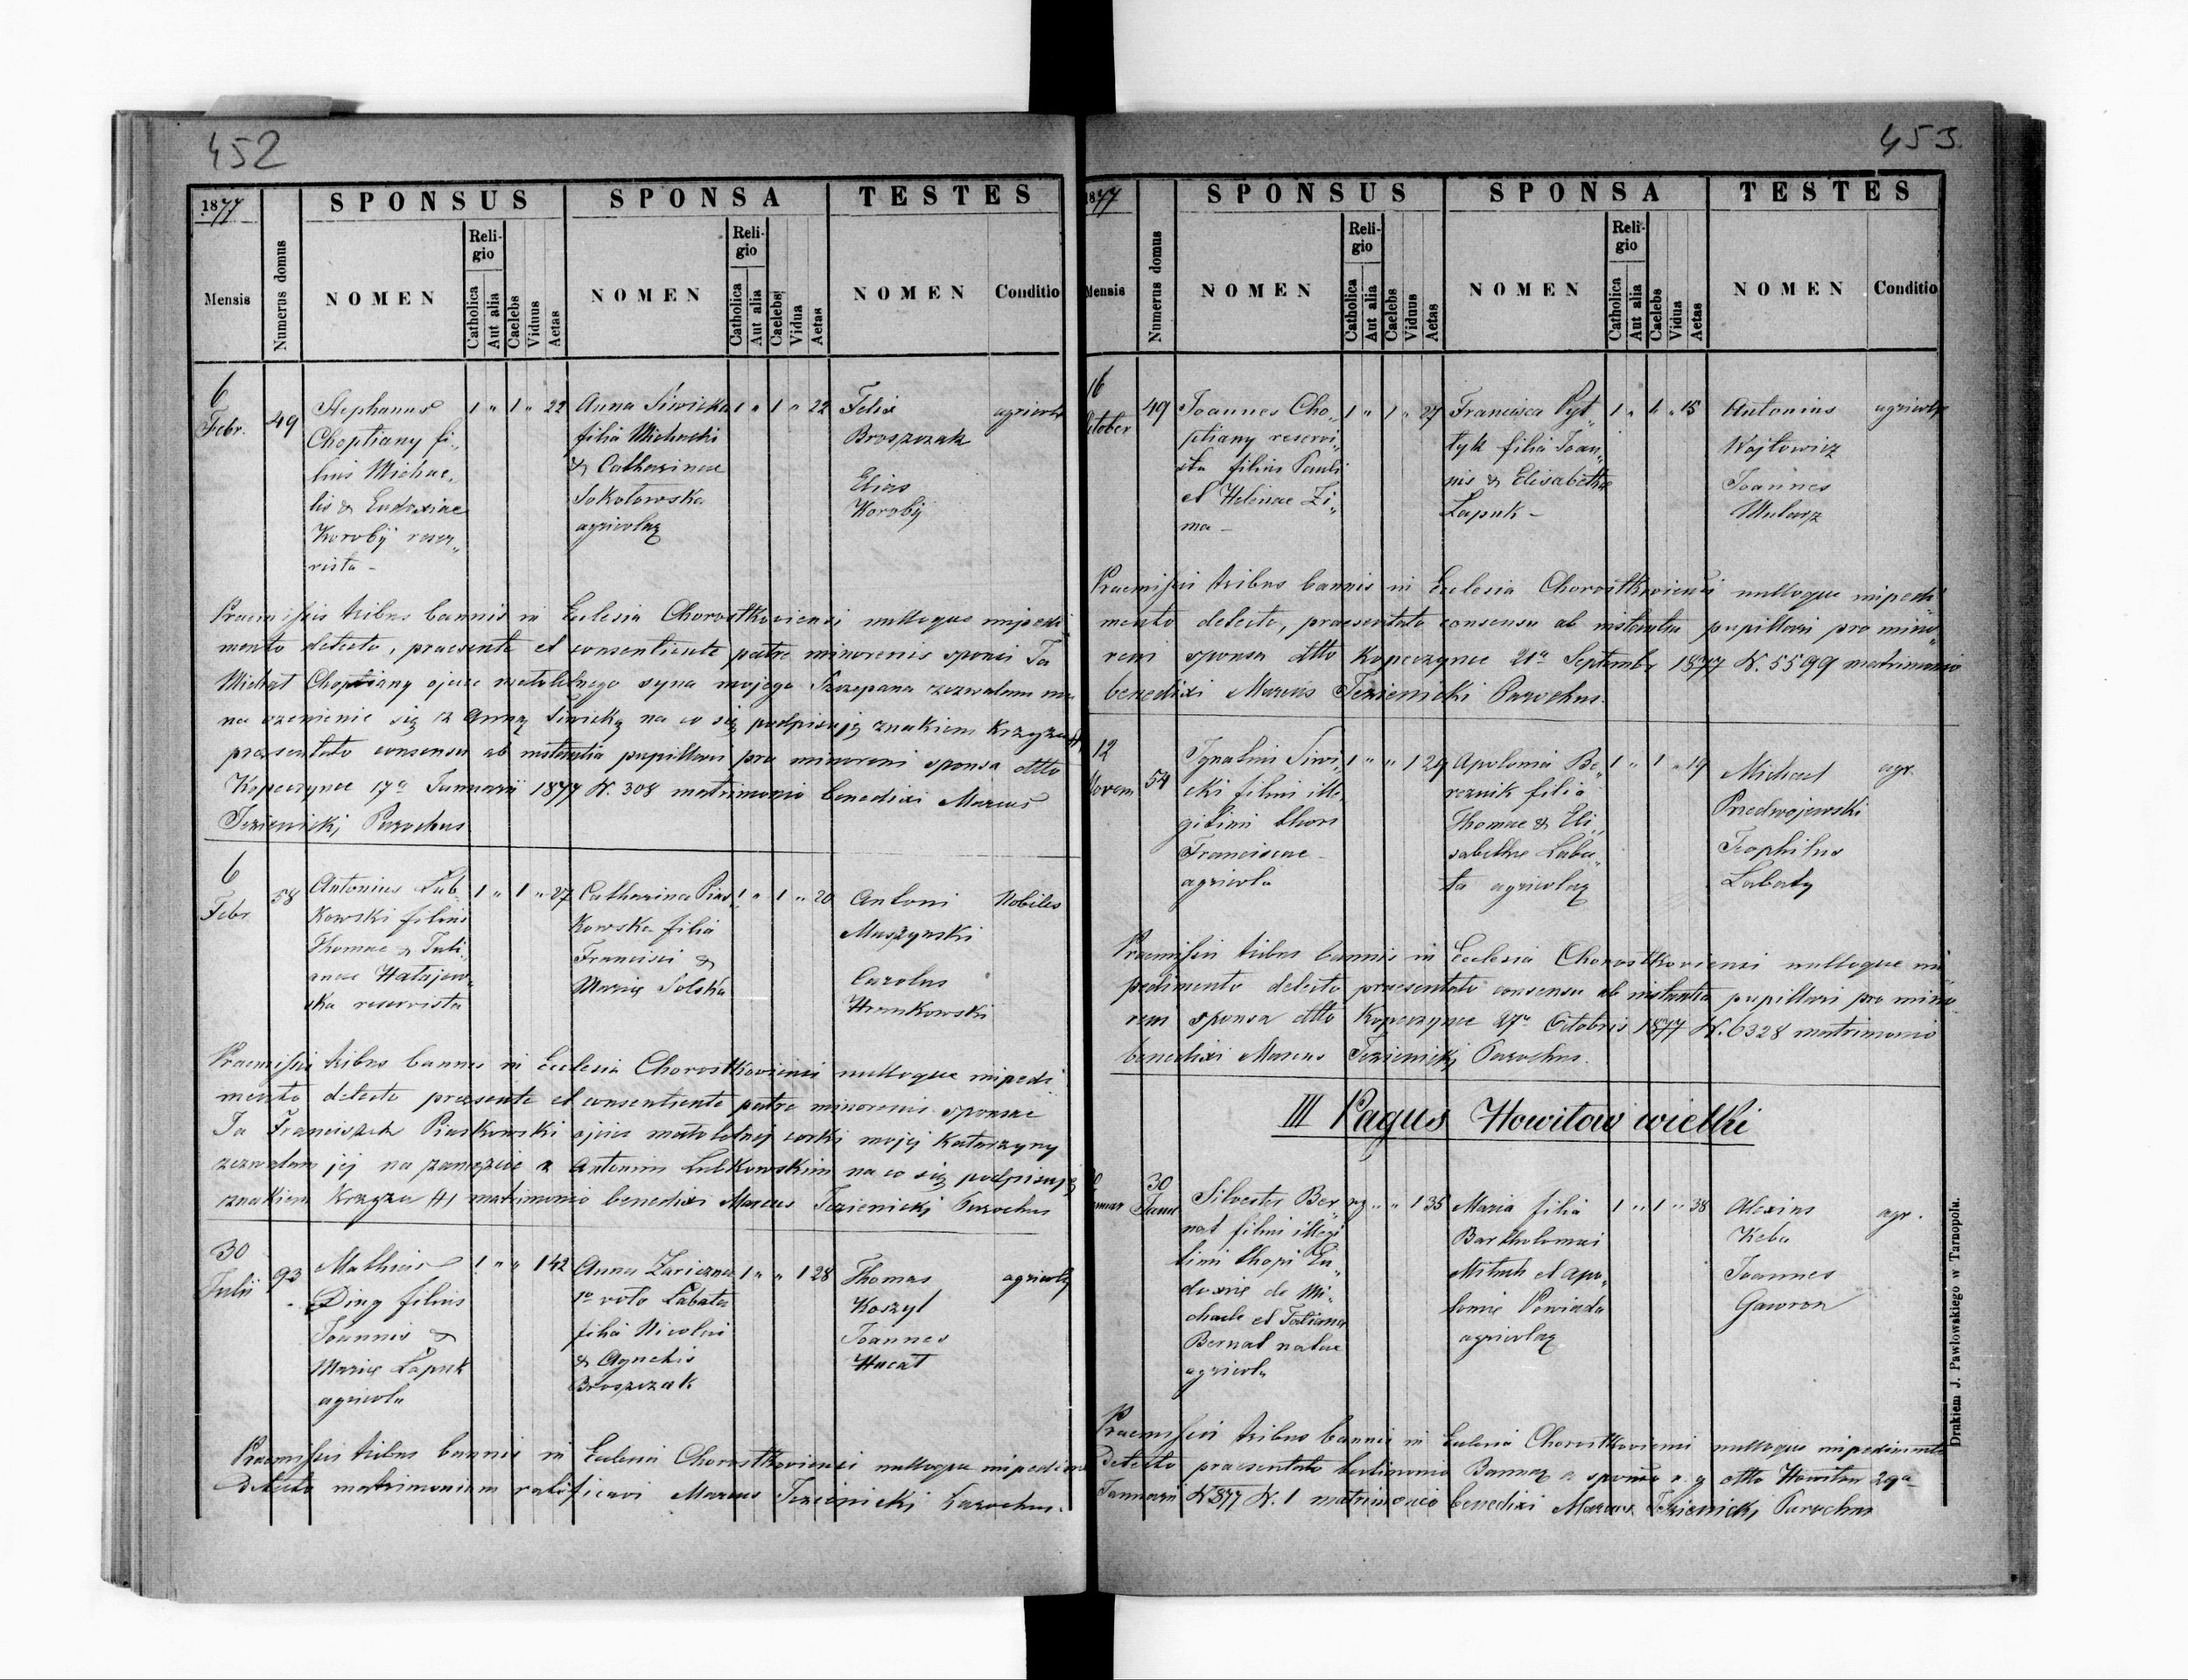 452
1877
SPONSUS
SPONSA
TESTES
Mensis
Numerus domus
NOMEN
Religio
Catholica
Aut alia
Caelebs
Viduus
Aetas
NOMEN
Religio
Catholica
Aut alia
Caelebs
Vidua
Aetas
NOMEN
Conditio
6
Febr.
49
Stephanus
Choptiany fi„
lius Michae„
lis & Eudoxiae
Korobÿ reser„
vista -
1 " 1 " 22
Anna Siwicka
filia Michaeli
& Catharinae
Sokołowska
agricolaȩ
1 " 1 " 22
Felix
Broszczak
Elias
Korobÿ
agricolȩ
Praemissis tribus bannis in Eclesia Chorostkoviensi nulloque impedi
mento detecto, praesente et consentiente patre minorenis sponsi Ja
Michał Choptiany ojciec małoletnego syna mojego Szczepana zezwalam mu
na ozenienie się z Anną Siwicką na co się podpisuję znakiem krzyża
praesentato consensu ab instantia pupillari pro minoreni sponsa dtto
Kopeczynce 17a Januarii 1877 N. 308 matrimonio benedixi Marcus
Jezienicki Parochus
6
Febr.
58
Antonius Lub„
kowski filius
Thomae & Juli„
anae Hałajew„
ska reservista
1 " 1 " 27
Catharina Pias„
kowska filia
Francisci &
Mariȩ Solska
1 " 1 " 20
Antoni
Muszynski
Carolus
Hrankowski
Nobiles
Praemissis tribus bannis in Eclesia Chorostkoviensi nulloque impedi
mento detecto praesente et consentiente patre minorenis sponsae
Ja Franciszek Piaskowski ojciec małoletnej corki mojej Katarzyny
zezwalam jej na zamęzcie z Antonim Lubkowskim na co się podpisuję
znakiem Krzyża (+) matrimonio benedixi Marcus Jezienickj Parochus
30
Julii
93
Mathias
Ding filius
Joannis &
Mariȩ Łapuk
agricola
1 " " 1 42
Anna Zariczna
1o voto Łabata
filia Nicolai
& Agnetis
Broszczak
1 " " 1 28
Thomas
Koszyl
Joannes
Hucał
agricolȩ
Praemissis tribus bannis in Eclesia Chorostkoviensi nulloque impedime
detecto matrimonium ratificavi Marcus Jezienickj Parochus.
453
1877
SPONSUS
SPONSA
TESTES
Mensis
Numerus domus
NOMEN
Religio
Catholica
Aut alia
Caelebs
Viduus
Aetas
NOMEN
Religio
Catholica
Aut alia
Caelebs
Vidua
Aetas
NOMEN
Conditio
16
October
49
Joannes Cho„
ptiany reservi„
sta filius Pauli
et Helenae Zi„
ma -
1 " 1 " 27
Francisca Pył„
tyk filia Joan„
nis & Elisabethae
Łapuk -
1 " 1 " 15
Antonius
Wojtowicz
Joannes
Mularz
agricolȩ
Praemissis tribus bannis in Eclesia Chorostkoviensi nulloque impedi
mento detecto, praesentato consensu ab instantia pupillari pro mino„
reni sponsa dtto Kopeczynce 21a Septembr 1877 N. 5599 matrimonio
benedixi Marcus Jezienicki Parochus.
12
Novem
54
Ignatius Siwi„
cki filius ille„
gitimi thori
Franciscae
agricola
1 " " 1 24
Apolonia Be„
reznik filia
Thomae & Eli„
sabethae Łaba„
ta agricolaȩ
1 " 1 " 19
Michael
Przedwojewski
Teophilus
Łabaty
agr.
Praemissis tribus bannis in Eclesia Chorostkoviensi nulloque im
pedimento detecto praesentato consensu ab instantia pupillari pro mino
reni sponsa dtto Kopeczynce 27a Octobris 1877 N. 6328 matrimonio
benedixi Marcus Jezienickj Parochus.
III Pagus Howiłow wielki
30
Silvester Ber„
nat filius illegi
timi thori Eu„
doxiȩ de Mi„
chaele et Tatianna
Bernat natae
agricola
" " 1 35
Maria filia
Bartholomei
Mituch et Apo„
loniȩ Powiada
agricolaȩ
1 " 1 " 38
Alexius
Keba
Joannes
Gawron
agr.
Praemissis tribus bannis in Eclesia Chorostkoviensi nulloque impedimento
detecto praesentato testimonio Bannaȩ a sponso r. g dtto Howiłow 29a
Januarii 1877 N. 1 matrimonio benedixi Marcus Jezienickj Parochus
Drukiem J. Pawłowskiego w Tarnopolu.